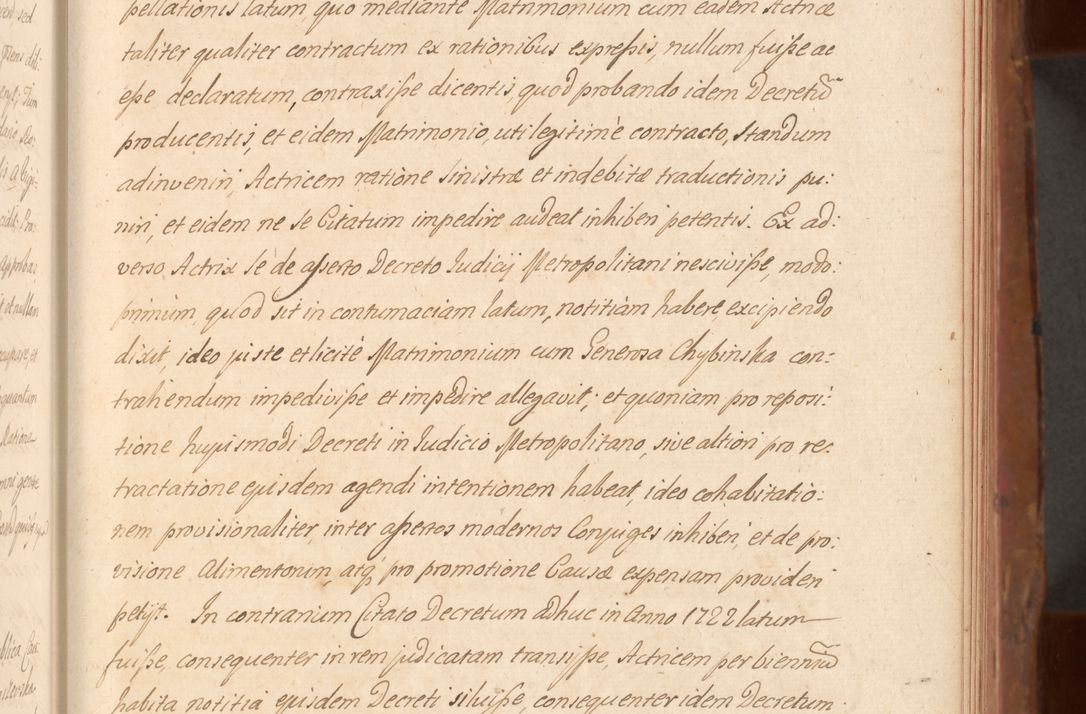 pellationis latum, quo mediante Matrimonium cum eadem Actrice
taliter qualiter contractum ex rationibus expressis, nullum fuisse ac
esse declaratum, contraxisse dicentis, quod probando idem Decretū
producentis, et eidem Matrimonio, uti legitimè contracto, standum
adinveniri, Actricem ratione sinistræ et indebitæ traductionis pu:
niri, et eidem ne se Citatum impedire audeat inhiberi petentis. Ex ad:
verso Actrix sè de asserto Decreto Judicij Metropolitani nescivisse, modo:
primùm, quod sit in contumaciam latum, notitiam habere excipiendo
dixit, ideo juste et licitè Matrimonium cum Generosa Chybinska con:
trahendum impedivisse et impedire allegavit; et quoniam pro reposi:
tione hujusmodi Decreti in Judicio Metropolitano, sive altiori pro re:
tractatione ejusdem agendi intentionem habeat, ideo cohabitatio:
nem provisionaliter, inter assertos modernos Conjuges inhiberi, et de pro:
visione Alimentorum, atq́ pro promotione Causæ expensam provideri
petijt. In contrarium Citato Decretum adhuc in Anno 1722 latum
fuisse, consequenter in rem judicatam transijsse, Actricem per bienniū
habita notitia ejusdem Decreti siluisse, consequenter idem Decretum